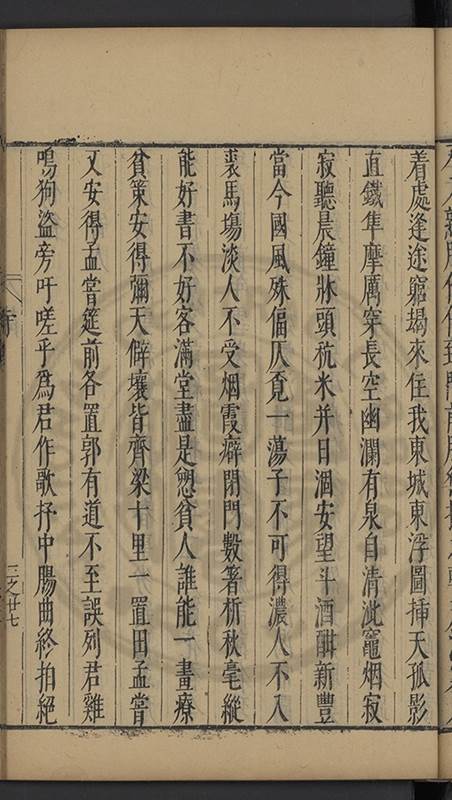 着處逢途窮朅來住我東城東浮圖挿天孤影
直鐵隼摩厲穿長空幽澗有泉自清泚竈烟寂
寂聽晨鐘牀頭秔米并日涸安望斗酒酣新豐
當今國風殊偪仄覓一蕩子不可得濃人不入
裘馬塲淡人不受烟霞癖閉門數箸析秋毫縱
能好書不好客滿堂盡是愬貧人誰能一畫療
貧策安得彌天僻壤皆齊梁十里一置田孟嘗
又安得孟嘗筵前各置郭有道不至誤列君雞
鳴狗盜旁吁嗟乎爲君作歌抒中腸曲終拍絕
三之廿七